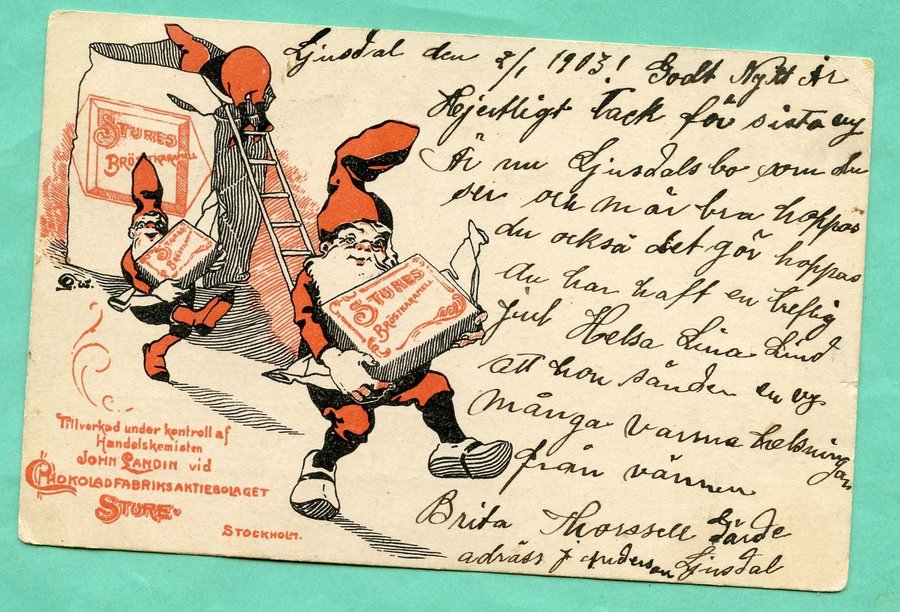 Ljusdal den 2/1 1903! Godt Nytt År
Hjertligt Tack för sista
Är nu Ljusdalsbo som du
ser och mår bra hoppas
du också det gör hoppas
du har haft en heflig
Jul Helsa Lina Lind
att hon sänder en
många varma helsningar
från vännen
Brita Thorssell Gärde
adräss Anderson Ljusdal
STURES
BRÖSTKARAMELL
STURES
BRÖSTKARAMELL
STURES
BRÖSTKARAMELL
Tillverkad under kontroll af
Handelskemisten
JOHN LANDIN vid
CHOKOLADFABRIKSAKTIEBOLAGET
STURE
STOCKHOLM.